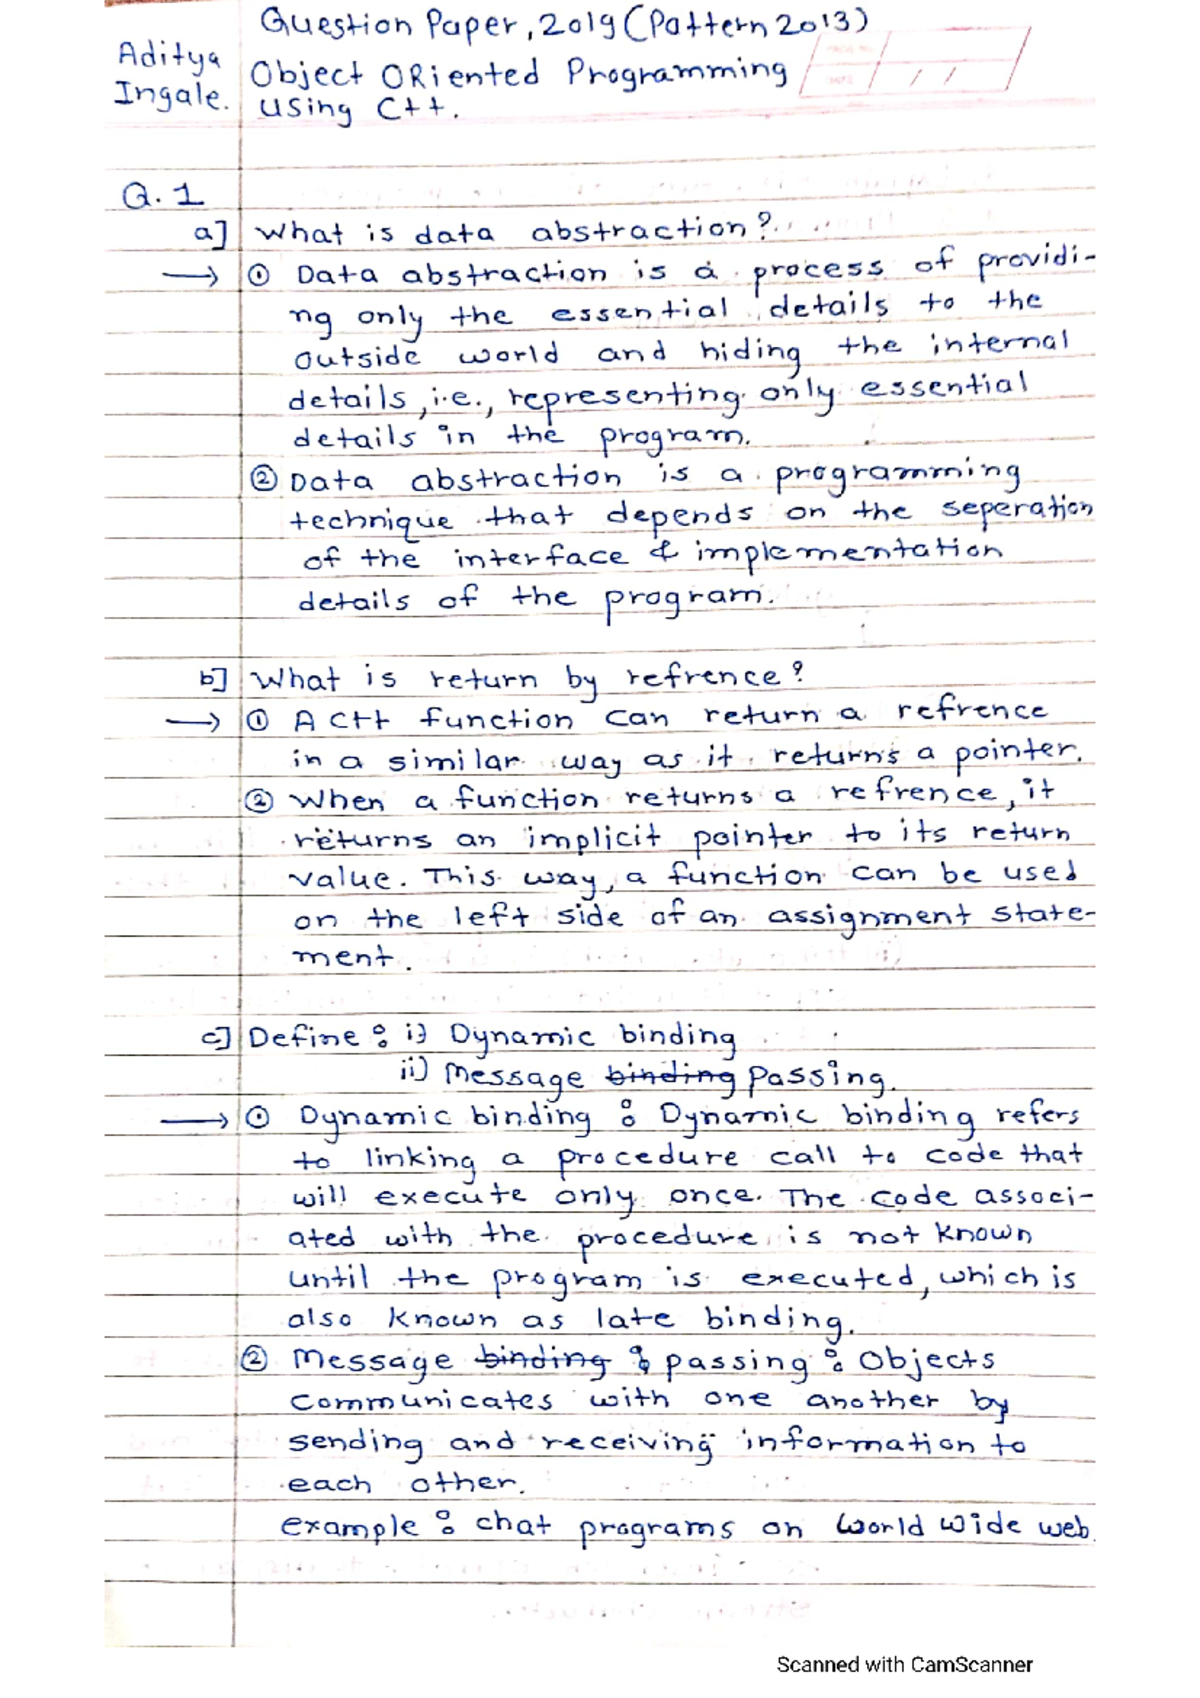 Question Paper, 2019 (Pattern 2013)
Aditya Ingale.
Object ORiented Programming
using C++.
Q. 1
a] What is data abstraction?
→ ① Data abstraction is a process of providi-
ng only the essential details to the
outside world and hiding the internal
details, i.e., representing only essential
details in the program.
② Data abstraction is a programming
technique that depends on the seperation
of the interface & implementation
details of the program.
b] What is return by refrence?
→ ① A C++ function can return a refrence
in a similar way as it returns a pointer.
② When a function returns a refrence, it
returns an implicit pointer to its return
value. This way, a function can be used
on the left side of an assignment state-
ment.
c] Define : i) Dynamic binding
ii) Message binding Passing.
→ ① Dynamic binding : Dynamic binding refers
to linking a procedure call to code that
will execute only once. The code associ-
ated with the procedure is not known
until the program is executed, which is
also known as late binding.
② Message binding : passing : Objects
communicates with one another by
sending and receiving information to
each other.
example : chat programs on World Wide web.
Scanned with CamScanner